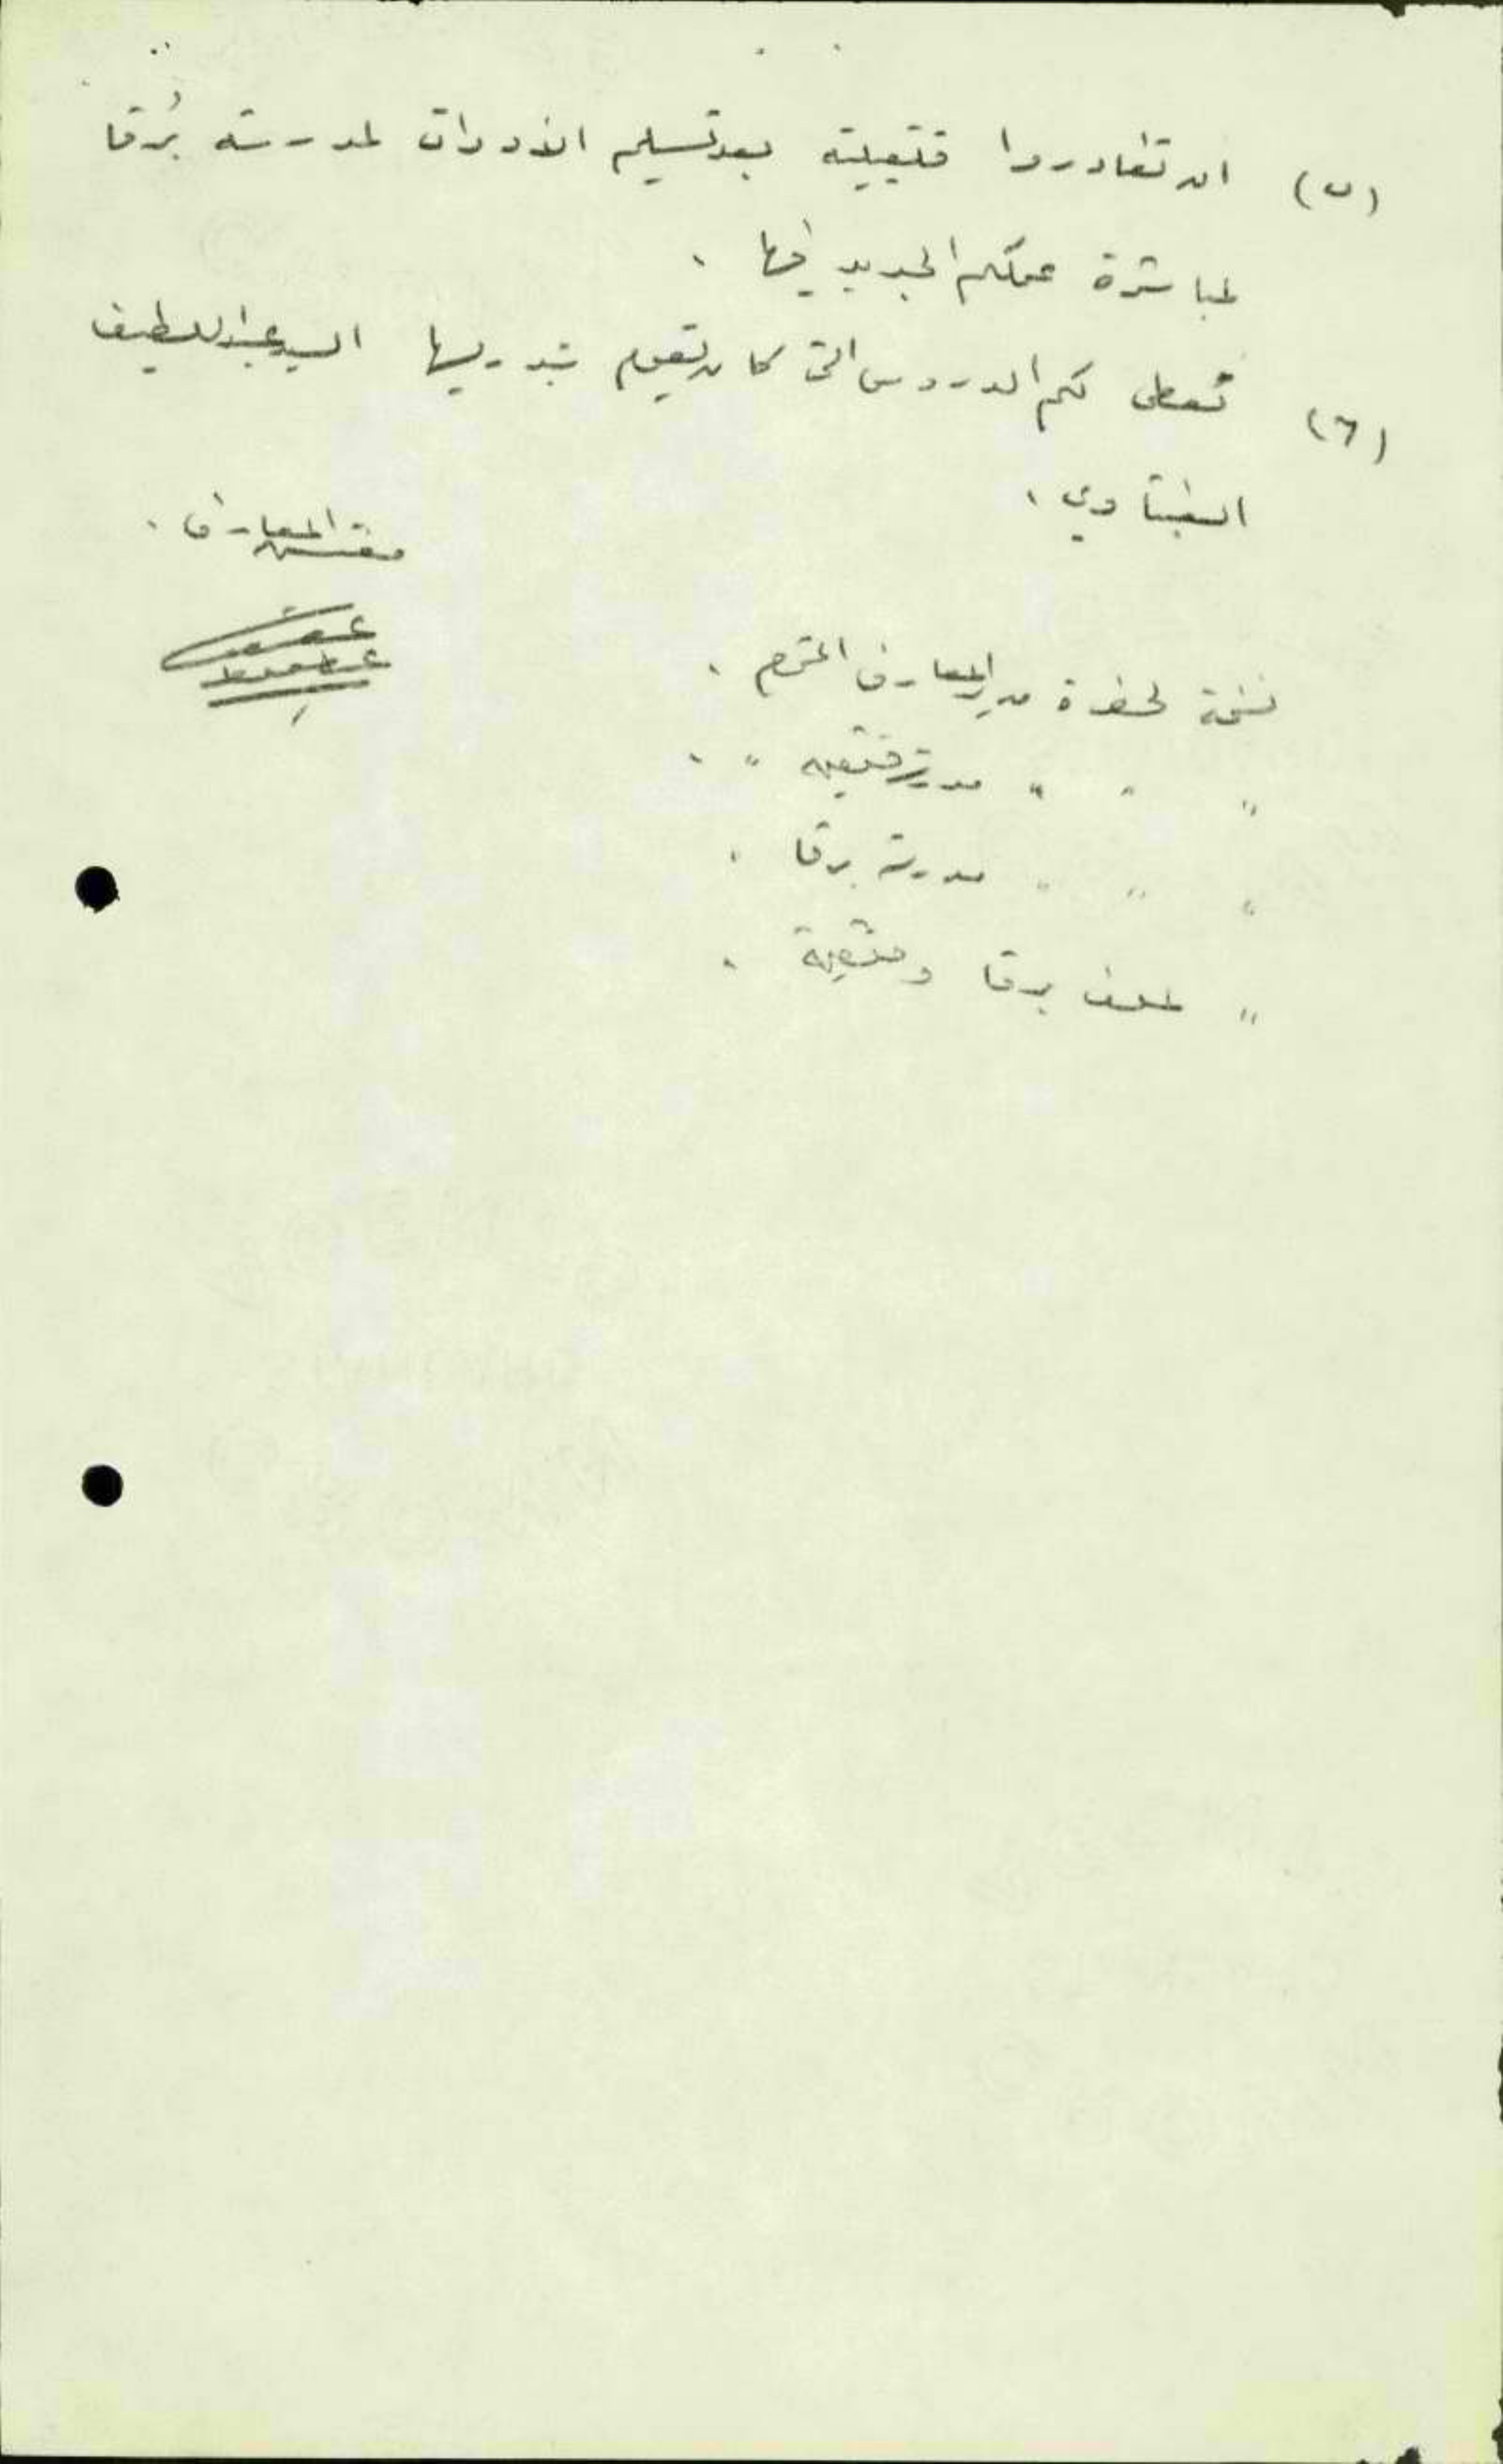 (ں) ان تغادروا قلقيلية بعد تسليم الأدوات لمدرسة بُرقا
لمباشرة عملكم الجديد فيها .
(٦) تعطى لكم الدروس التي كان يقوم بتدريسها السيد عبد اللطيف
مفتش المعارف .
نسخة لحضرة مدير المعارف المحترم .
" " " مدير قلقيلية " .
" " " مدرسة برقا .
" لملف برقا وقلقيلية .